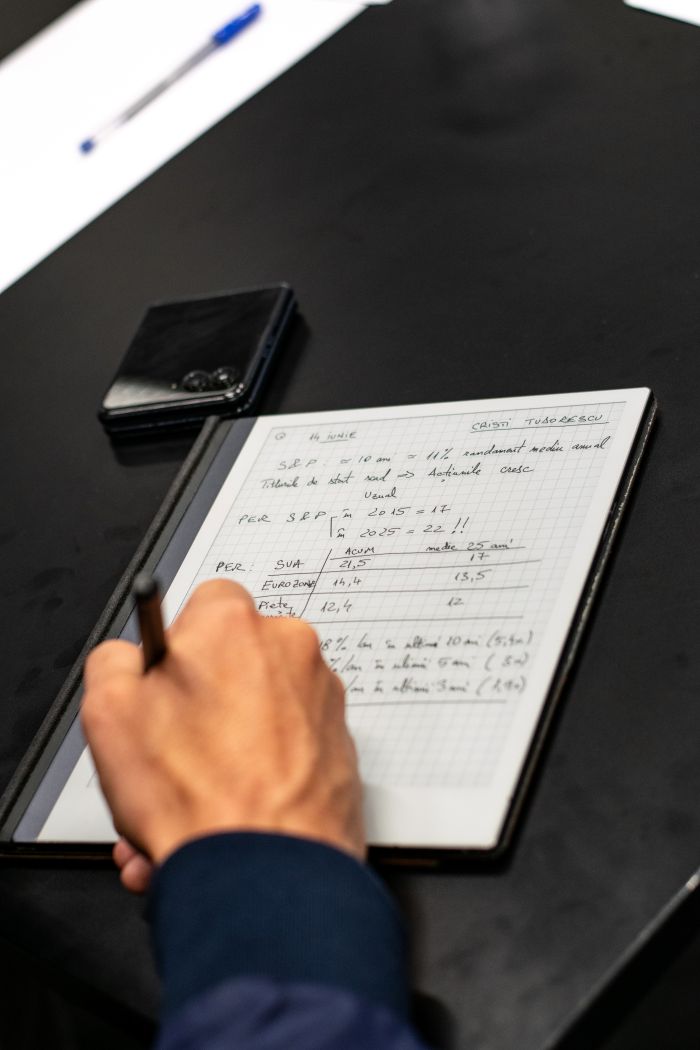 14 IUNIE
CRISTI TUDORESCU
S&P: ≃ 10 ani ≃ 11% randament mediu anual
Titlurile de stat scad => Acțiunile cresc
Uzual
PER S&P în 2015 = 17
în 2025 = 22 !!
ACUM medie 25 ani
PER: SUA 21,5 17
EUROZONE 14,4 13,5
Piețe 12,4 12
18%/an în ultimii 10 ani (5,4x)
%/an în ultimii 5 ani (3x)
/an în ultimii 3 ani